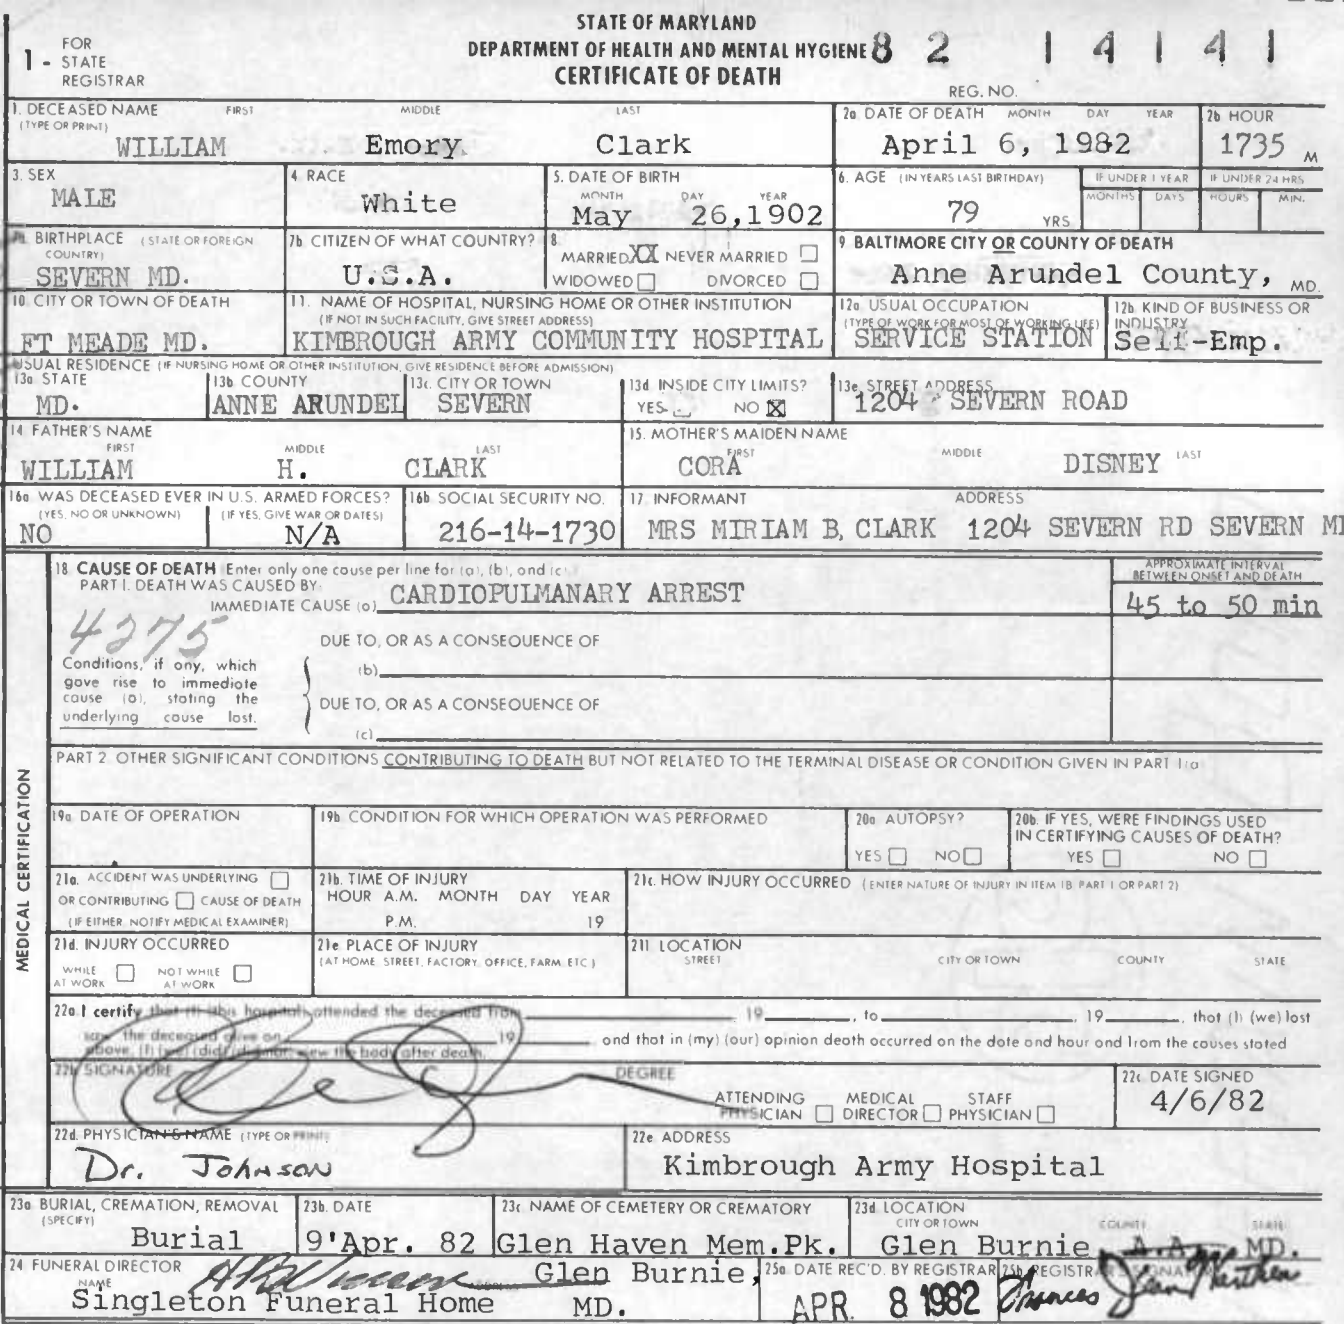 STATE OF MARYLAND
DEPARTMENT OF HEALTH AND MENTAL HYGIENE 82 14141
CERTIFICATE OF DEATH
1 - FOR STATE REGISTRAR
REG. NO.
1. DECEASED NAME FIRST MIDDLE LAST
(TYPE OR PRINT)
WILLIAM Emory Clark
2a DATE OF DEATH MONTH DAY YEAR
April 6, 1982
2b HOUR
1735 M
3. SEX
MALE
4. RACE
White
5. DATE OF BIRTH
MONTH DAY YEAR
May 26,1902
6. AGE (IN YEARS LAST BIRTHDAY)
79 YRS.
IF UNDER 1 YEAR
MONTHS DAYS
IF UNDER 24 HRS
HOURS MIN.
BIRTHPLACE (STATE OR FOREIGN
COUNTRY)
SEVERN MD.
7b. CITIZEN OF WHAT COUNTRY?
U.S.A.
8
MARRIED XX NEVER MARRIED
WIDOWED DIVORCED
9 BALTIMORE CITY OR COUNTY OF DEATH
Anne Arundel County, MD.
10. CITY OR TOWN OF DEATH
FT MEADE MD.
11. NAME OF HOSPITAL, NURSING HOME OR OTHER INSTITUTION
(IF NOT IN SUCH FACILITY, GIVE STREET ADDRESS)
KIMBROUGH ARMY COMMUNITY HOSPITAL
12a. USUAL OCCUPATION
(TYPE OF WORK FOR MOST OF WORKING LIFE)
SERVICE STATION
12b. KIND OF BUSINESS OR
INDUSTRY
Self-Emp.
USUAL RESIDENCE (IF NURSING HOME OR OTHER INSTITUTION, GIVE RESIDENCE BEFORE ADMISSION)
13a STATE
MD.
13b. COUNTY
ANNE ARUNDEL
13c. CITY OR TOWN
SEVERN
13d INSIDE CITY LIMITS?
YES NO X
13e. STREET ADDRESS
1204 SEVERN ROAD
14 FATHER'S NAME
FIRST MIDDLE LAST
WILLIAM H. CLARK
15. MOTHER'S MAIDEN NAME
FIRST MIDDLE LAST
CORA DISNEY
16a WAS DECEASED EVER IN U.S. ARMED FORCES?
(YES, NO OR UNKNOWN) (IF YES, GIVE WAR OR DATES)
NO N/A
16b SOCIAL SECURITY NO.
216-14-1730
17 INFORMANT ADDRESS
MRS MIRIAM B. CLARK 1204 SEVERN RD SEVERN MD
MEDICAL CERTIFICATION
18 CAUSE OF DEATH Enter only one cause per line for (a), (b), and (c)
PART I. DEATH WAS CAUSED BY:
IMMEDIATE CAUSE (a) CARDIOPULMANARY ARREST
APPROXIMATE INTERVAL
BETWEEN ONSET AND DEATH
45 to 50 min
4275
Conditions, if any, which
gave rise to immediate
cause (a), stating the
underlying cause last.
DUE TO, OR AS A CONSEQUENCE OF
(b)
DUE TO, OR AS A CONSEQUENCE OF
(c)
PART 2 OTHER SIGNIFICANT CONDITIONS CONTRIBUTING TO DEATH BUT NOT RELATED TO THE TERMINAL DISEASE OR CONDITION GIVEN IN PART 1(a)
19a DATE OF OPERATION
19b CONDITION FOR WHICH OPERATION WAS PERFORMED
20a AUTOPSY?
YES NO
20b. IF YES, WERE FINDINGS USED
IN CERTIFYING CAUSES OF DEATH?
YES NO
21a. ACCIDENT WAS UNDERLYING
OR CONTRIBUTING CAUSE OF DEATH
(IF EITHER, NOTIFY MEDICAL EXAMINER)
21b. TIME OF INJURY
HOUR A.M. MONTH DAY YEAR
P.M. 19
21c. HOW INJURY OCCURRED (ENTER NATURE OF INJURY IN ITEM 18 PART 1 OR PART 2)
21d. INJURY OCCURRED
WHILE AT WORK NOT WHILE AT WORK
21e PLACE OF INJURY
(AT HOME, STREET, FACTORY, OFFICE, FARM, ETC.)
21f LOCATION
STREET CITY OR TOWN COUNTY STATE
22a I certify that (I) (this hospital) attended the deceased from 19 , to , 19 , that (I) (we) last
saw the deceased alive on 19 , and that in (my) (our) opinion death occurred on the date and hour and from the causes stated
above, (I) (we) (did) (did not) view the body after death.
22b SIGNATURE DEGREE
ATTENDING PHYSICIAN MEDICAL DIRECTOR STAFF PHYSICIAN
22c DATE SIGNED
4/6/82
22d. PHYSICIAN'S NAME (TYPE OR PRINT)
Dr. Johnson
22e ADDRESS
Kimbrough Army Hospital
23a BURIAL, CREMATION, REMOVAL
(SPECIFY)
Burial
23b. DATE
9'Apr. 82
23c NAME OF CEMETERY OR CREMATORY
Glen Haven Mem.Pk.
23d LOCATION
CITY OR TOWN COUNTY STATE
Glen Burnie A.A. MD.
24 FUNERAL DIRECTOR
NAME
Singleton Funeral Home
Glen Burnie,
MD.
25a DATE REC'D. BY REGISTRAR
APR. 8 1982
25b REGISTRAR SIGNATURE
Frances